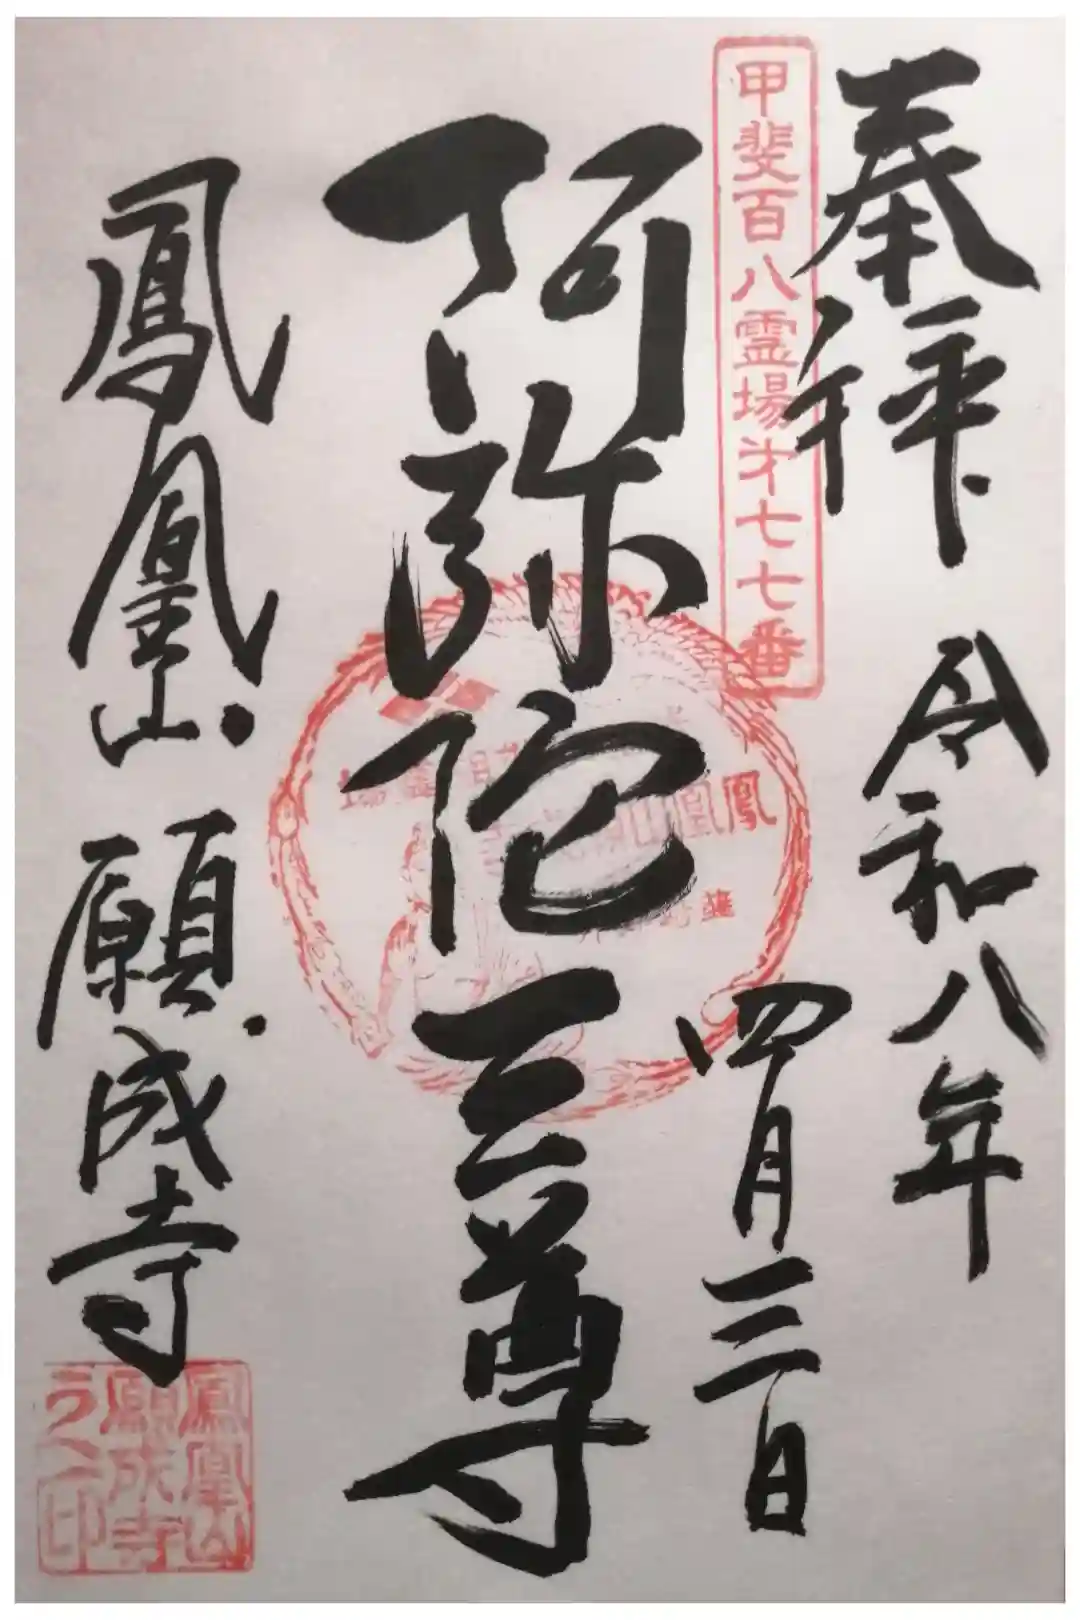 奉拝
令和八年
四月三日
甲斐百八霊場第七七番
阿弥陀三尊
鳳凰山
鳳凰山
願成寺
鳳凰山
願成寺
之印